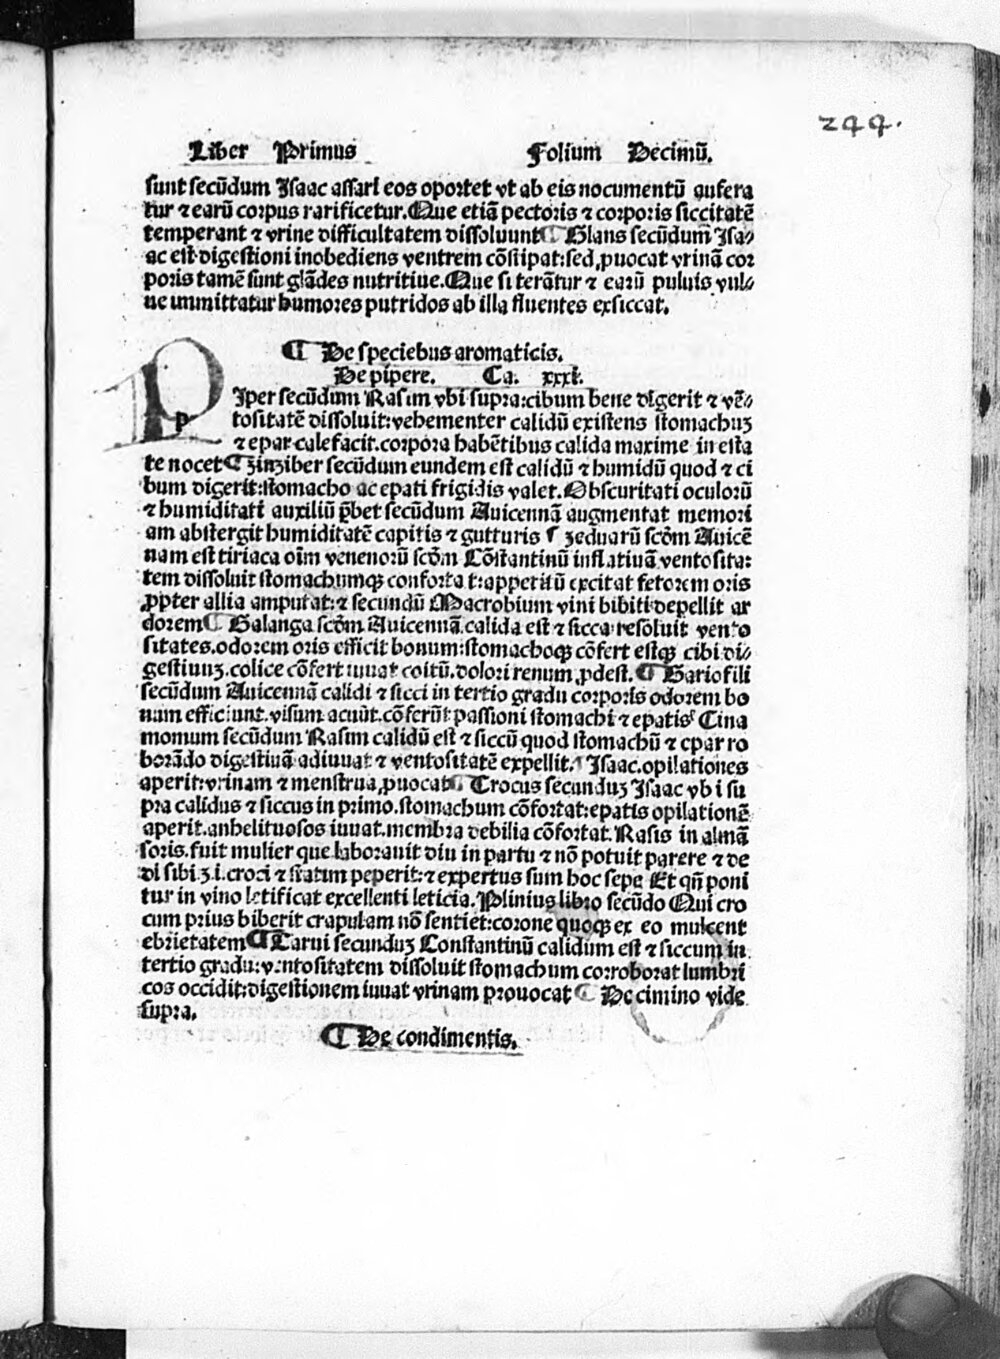 244.
Liber Primus Folium Decimū.
sunt secūdum Isaac assari eos oportet vt ab eis nocumentū aufera
tur ⁊ earū corpus rarificetur. Que etiā pectoris ⁊ corporis siccitatē
temperant ⁊ vrine difficultatem dissoluunt ¶ Glans secūdum Isa⸗
ac est digestioni inobediens ventrem cōstipat: sed ꝓuocat vrinā cor
poris tamē sunt glādes nutritiue. Que si terātur ⁊ earū puluis vul⸗
ue immittatur humores putridos ab illa fluentes exsiccat.
¶ De speciebus aromaticis.
De pipere. Ca. xxxi.
PIper secūdum Rasim vbi supra: cibum bene digerit ⁊ vē⸗
tositatē dissoluit: vehementer calidū existens stomachuꝫ
⁊ epar calefacit. corpora habētibus calida maxime in esta
te nocet ¶ Zinziber secūdum eundem est calidū ⁊ humidū quod ⁊ ci
bum digerit: stomacho ac epati frigidis valet. Obscuritati oculorū
⁊ humiditati auxiliū p̄bet secūdum Auicennā augmentat memori
am abstergit humiditatē capitis ⁊ gutturis ¶ Zeduarū scd̓m Auicē
nam est tiriaca oīm venenorū scd̓m Cōstantinū inflatiuā ventosita⸗
tem dissoluit stomachumqꝫ confortat: appetitū excitat fetorem oris
ꝓpter allia amputat: ⁊ secundū Macrobium vini bibiti depellit ar
dorem ¶ Galanga scd̓m Auicennā calida est ⁊ sicca resoluit vento
sitates. odorem oris efficit bonum: stomachoqꝫ cōfert estqꝫ cibi di⸗
gestiuuꝫ. colice cōfert iuuat coitū. dolori renum ꝓdest. ¶ Gariofili
secūdum Auicennā calidi ⁊ sicci in tertio gradu corporis odorem bo
num efficiunt. visum acuūt. cōferūt passioni stomachi ⁊ epatis ¶ Cina
momum secūdum Rasim calidū est ⁊ siccū quod stomachū ⁊ epar ro
borādo digestiuā adiuuat ⁊ ventositatē expellit. ¶ Isaac. opilationes
aperit: vrinam ⁊ menstrua ꝓuocat ¶ Crocus secunduꝫ Isaac vbi su
pra calidus ⁊ siccus in primo. stomachum cōfortat: epatis opilationē
aperit. anhelituosos iuuat. membra debilia cōfortat. Rasis in almā
soris. fuit mulier que laborauit diu in partu ⁊ nō potuit parere ⁊ de
di sibi ʒ.i. croci ⁊ statim peperit: ⁊ expertus sum hoc sepe Et qn̄ poni
tur in vino letificat excellenti leticia. Plinius libro secūdo Qui cro
cum prius biberit crapulam nō sentiet: corone quoqꝫ ex eo mulcent
ebrietatem ¶ Carui secunduꝫ Constantinū calidum est ⁊ siccum in
tertio gradu: ventositatem dissoluit stomachum corroborat lumbri
cos occidit: digestionem iuuat vrinam prouocat ¶ De cimino vide
supra.
¶ De condimentis.